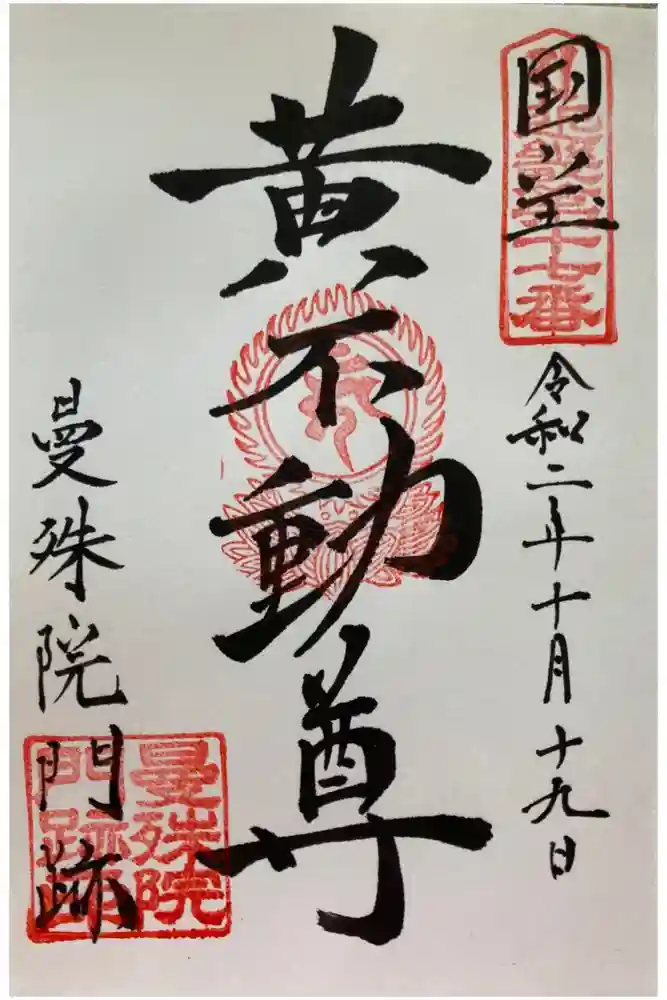 国宝
第十七番
令和二年十月十九日
黄不動尊
曼殊院門跡
曼殊院
門跡